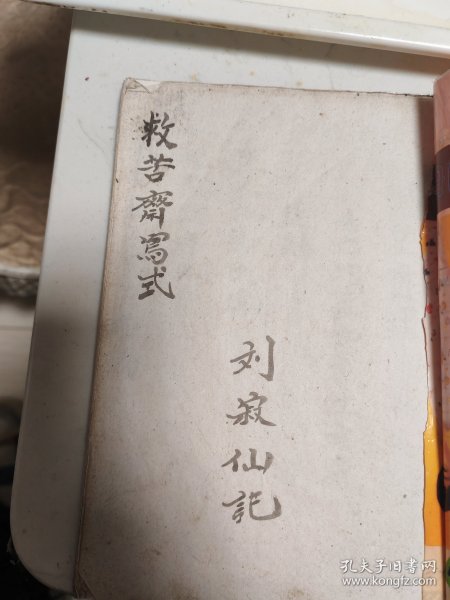 救苦齋寫式
刘寂仙記
孔夫子旧书网
www.kongfz.com